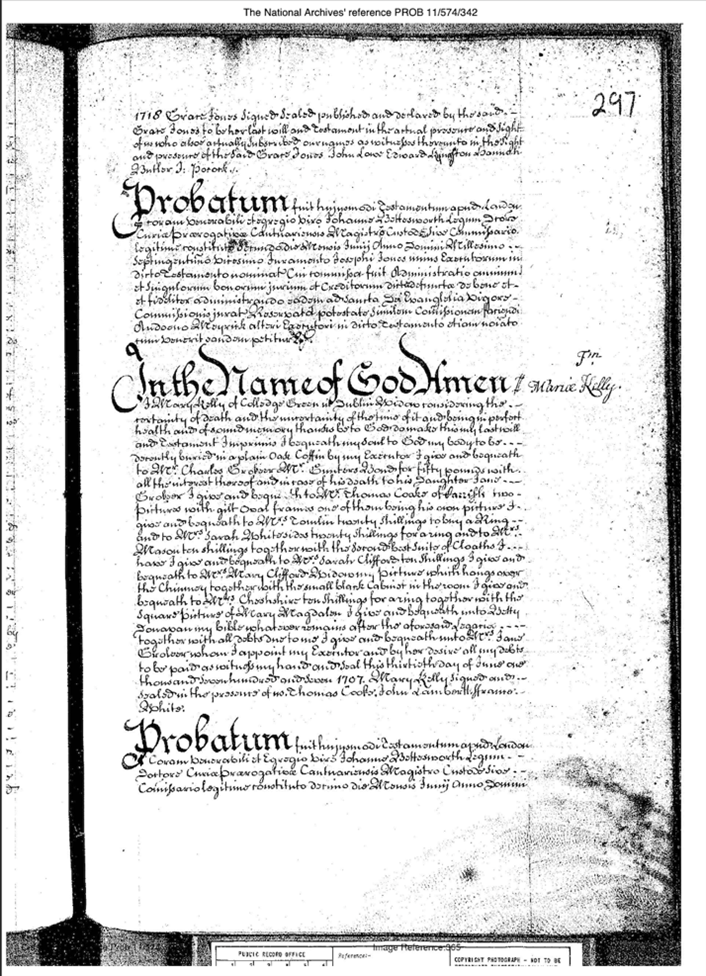 The National Archives' reference PROB 11/574/342
297
1718 Grace Jones Signed Sealed published and declared by the said
Grace Jones to be her last will and Testament in the actual presence and Sight
of us who also actually subscribed our names as witnesses thereunto in the Sight
and presence of the said Grace Jones John Lowe Edward Hannah
Butler J: Pocock
Probatum fuit hujusmodi Testamentum apud London
coram venerabili et egregio viro Johanne Bettesworth Legum Doctore
Curiæ Prærogativæ Cantuariensis Magistro Custode sive Commissario
legitime constituto Secundo die Mensis Junij Anno Domini Millesimo
Septingentimo vicesimo Juramento Josephi Jones unius Executorum in
dicto Testamento nominat Cui commissa fuit Administratio omnium
et singulorum bonorum jurium et Creditorum dictæ defunctæ de bene et
et fideliter administrando eadem ad Sancta Dei Evangelia Vigore
Commissionis jurat Reservata potestate similem Comissionem faciendi
Andoeno Meyrick alteri Executori in dicto Testamento etiam noiato
cum venerit eandem petitur
In the Name of God Amen
Tm
Mariæ Kelly.
I Mary Kelly of Colledge Green in Dublin Widow considering the
certainty of death and the uncertainty of the time of it and being in perfect
health and of sound memory thanks be to God do make this my last will
and Testament Imprimis I bequeath my soul to God my body to be
decently buried in a plain Oak Coffin by my Executor I give and bequeath
to Mr. Charles Grolier Mr. Gunters Bond for fifty pounds with
all the interest thereof and in case of his death to his Daughter Jane
Grolier I give and beque th to Mr. Thomas Cooke of two
Pictures with gilt Oval frames one of them being his own picture I
give and bequeath to Mrs. Tomlin twenty shillings to buy a Ring
and to Mrs. Sarah Whitesides twenty shillings for a ring and to Mrs.
Mason ten shillings together with the second best Suite of Cloaths I
have I give and bequeath to Mrs. Sarah Clifford ten shillings I give and
bequeath to Mrs. Mary Clifford Widow my Picture which hangs over
the Chimney together with the small black Cabinet in the room I give and
bequeath to Mrs. Cheshshire ten shillings for a ring together with the
Square Picture of Mary Magdalen I give and bequeath unto Betty
Donavan my bible whatever remains after the aforesaid Legacies
together with all debts due to me I give and bequeath unto Mrs. Jane
Grolier whom I appoint my Executor and by her desire all my debts
to be paid as witness my hand and seal this thirtieth day of June one
thousand seven hundred and seven 1707. Mary Kelly Signed and
sealed in the presence of us. Thomas Cooke. John Lambert.
White.
Probatum fuit hujusmodi Testamentum apud London
Coram venerabili et Egregio viro Johanne Bettesworth Legum
Doctore Curiæ Prærogativæ Cantuariensis Magistro Custode sive
Comissario legitime constituto decimo die Mensis Junij Anno Domini
Image Reference:
PUBLIC RECORD OFFICE
Reference:-
COPYRIGHT PHOTOGRAPH - NOT TO BE